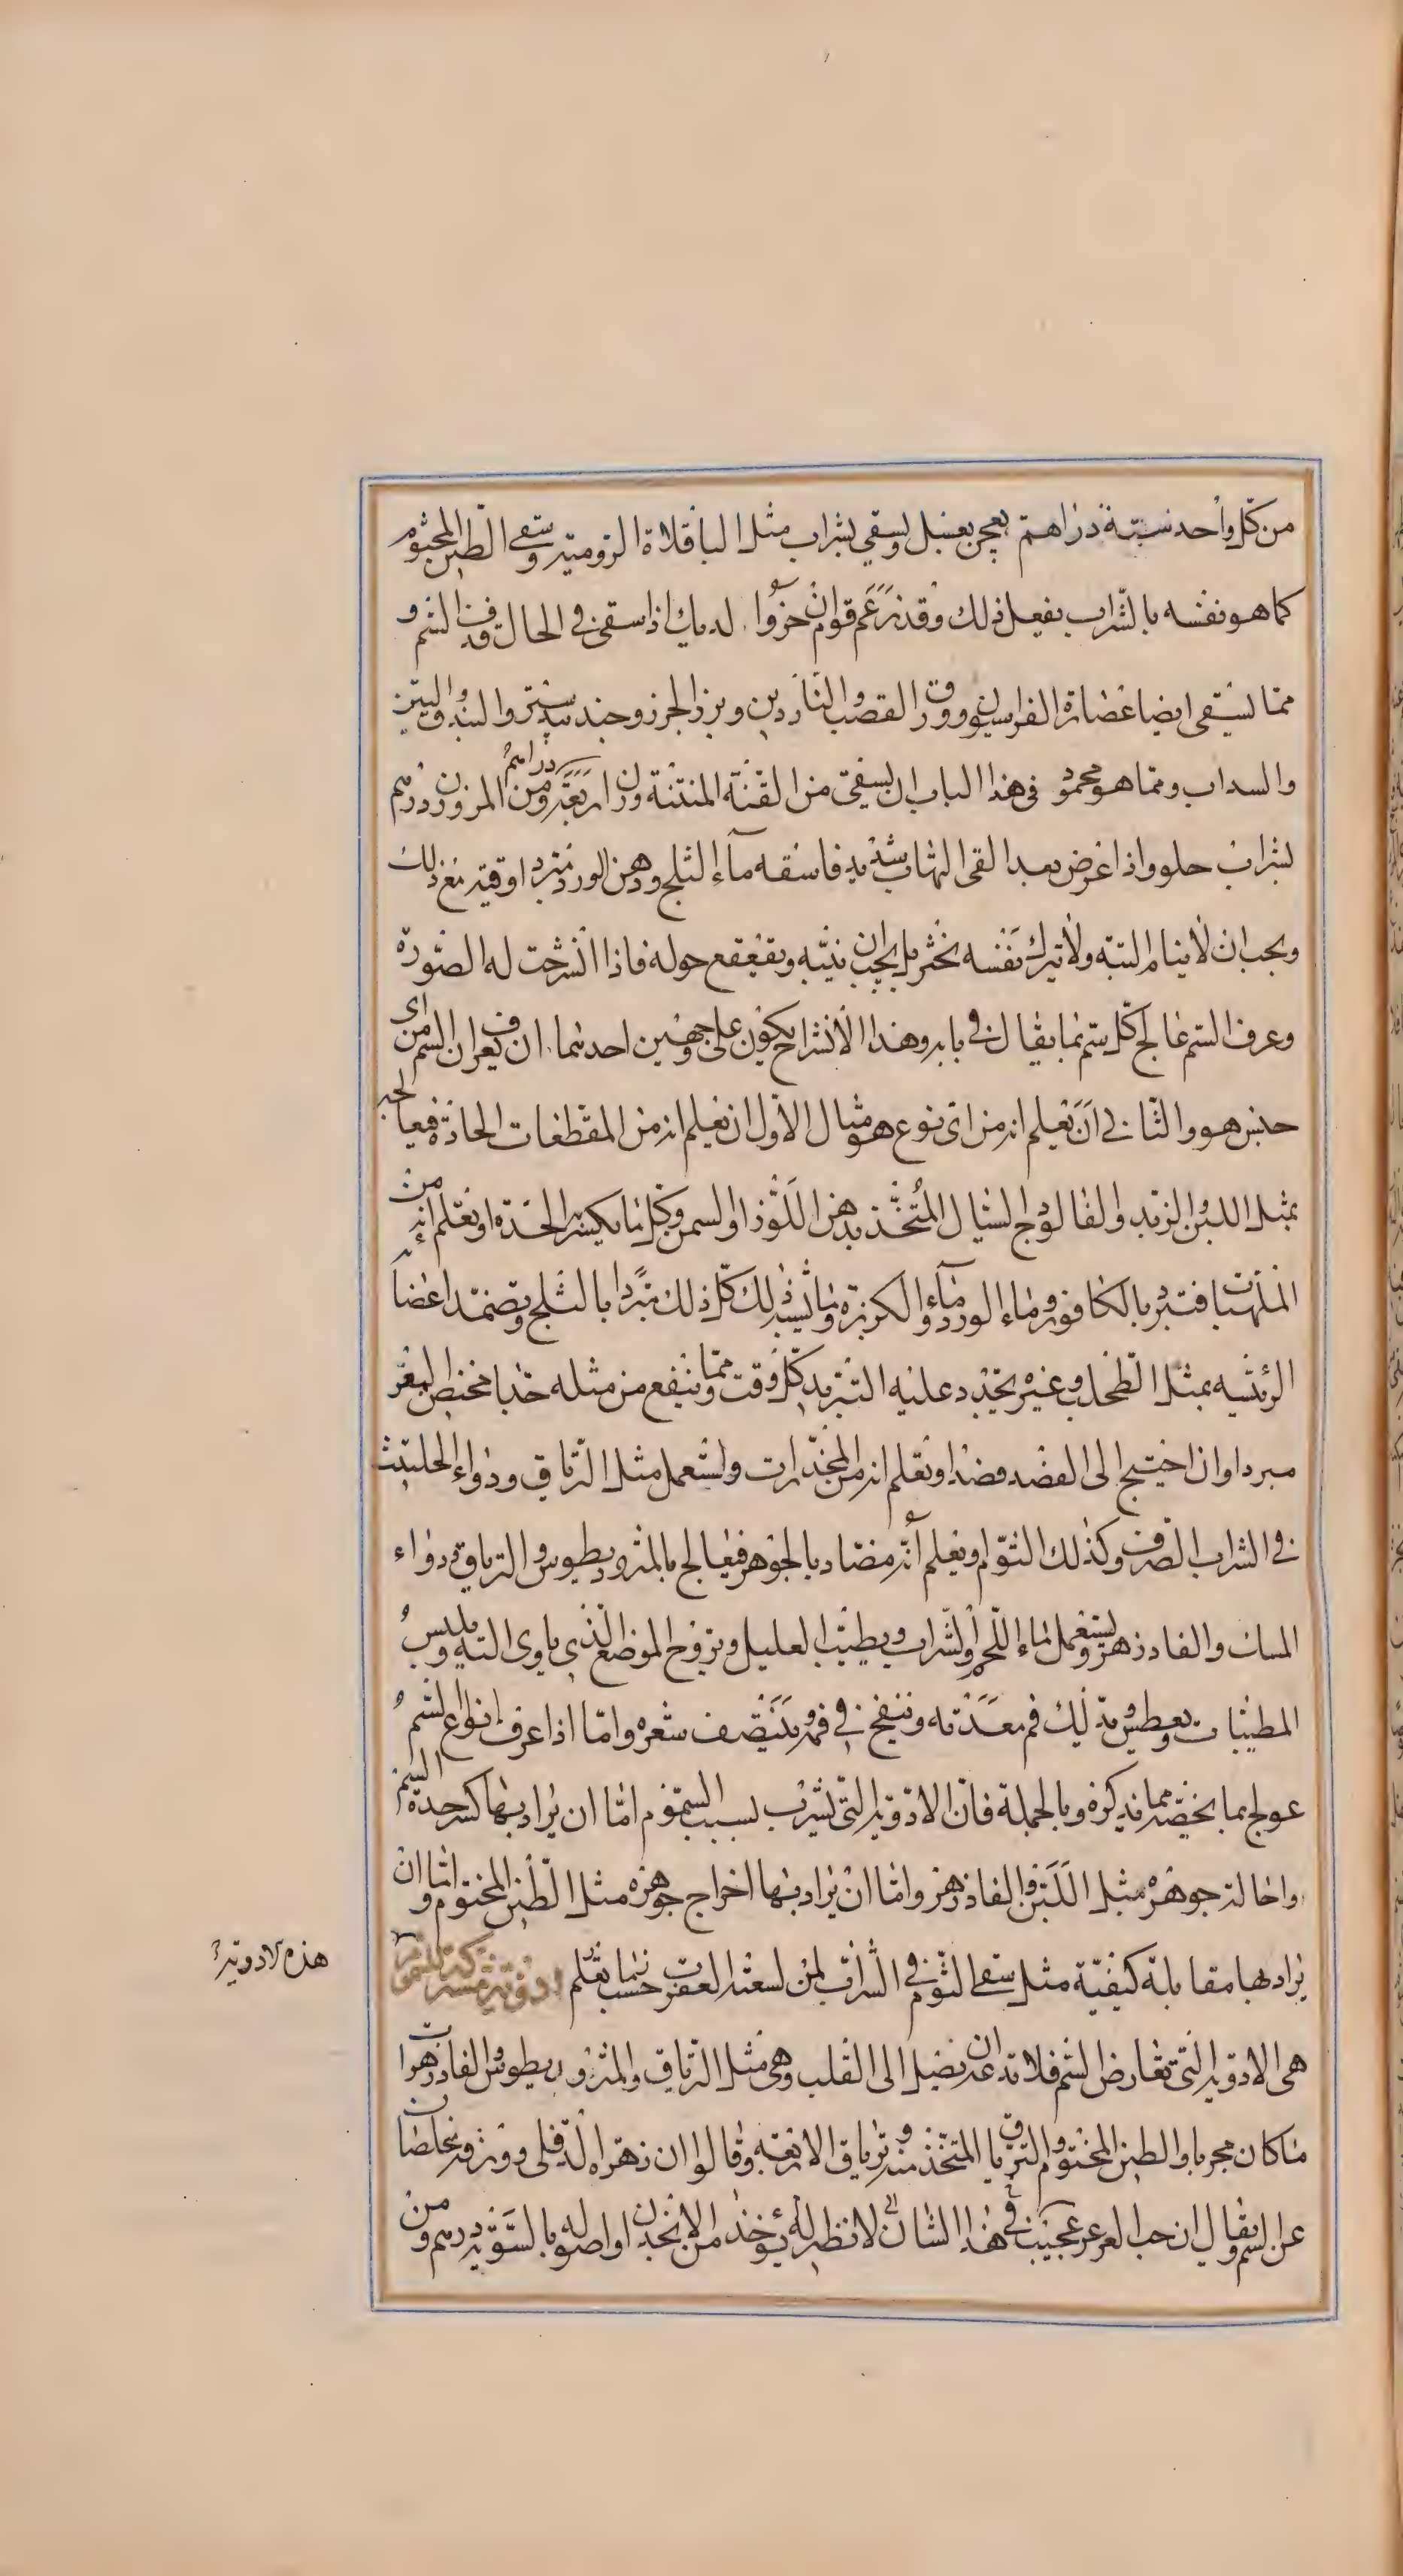 من كل واحد ستة دراهم يعجن بعسل ويسقى بشراب مثل الباقلاة الرومية وسقى الطين المختوم
كما هو نفسه بالشراب يفعل ذلك وقد زعم قوم ان خرؤ الديك اذا سقى فى الحال قذف السم و
مما يسقى ايضا عصارة الفراسيون وورق القصب والناردين وبزر الجزر وجندبيدستر والسنبل والتين
والسداب ومما هو محمود فى هذا الباب ان يسقى من القنة المنتنة وزن اربعة دراهم ومن المر وزن درهم
بشراب حلو واذا عرض بعد القى التهاب شديد فاسقه ماء الثلج ودهن الورد مبرد اوقيه مع ذلك
ويجب ان لا ينام البتة ولا يترك نفسه يخثر بل يجب ان ينبه ويقعقع حوله فاذا انشرحت له الصورة
وعرف السم عالج كل سم بما يقال فى بابه وهذا الانشراح يكون على وجهين احدهما ان يعرف ان السم من اى
جنس هو والثانى ان تعلم انه من اى نوع هو مثال الاول ان تعلم انه من المقطعات الحادة فيعالجه
بمثل اللبن والزبد والفالوذج السيال المتخذ بدهن اللوز او السمن وكل ما يكسر الحدة او تعلم انه من
الملهبات فتبرد بالكافور وماء الورد وماء الكزبرة وما يشبه ذلك كل ذلك مبردا بالثلج وتضمد اعضاء
الرئيسه بمثل الطحلب وغيره يجدد عليه التبريد كل وقت ومما ينفع من مثله جدا مخيض البقر
مبردا وان احتيج الى الفصد فصد او تعلم انه من المخدرات واستعمل مثل الترياق ودواء الحلتيث
فى الشراب الصرف وكذلك الثوم او تعلم انه مضاد بالجوهر فيعالج بالمثروديطوس والترياق ودواء
المسك والفادزهر ويستعمل ماء اللحم والشراب ويطيب العليل ويروح الموضع الذى ياوى اليه ويلبس
المطيبات ويعطس ويدلك فم معدته وينفخ فى فمه وينتف شعره واما اذا عرف انواع السم
عولج بما يخصه مما نذكره وبالجملة فان الادوية التى تشرب بسبب السموم اما ان يراد بها كسر حدة السم
واحالة جوهره مثل اللبن والفاذزهر واما ان يراد بها اخراج جوهره مثل الطين المختوم واما ان
يراد بها مقابلة كيفية مثل سقى الثوم فى الشراب لمن لسعته العقرب حسب ما نعلم ادوية مشتركة للسموم
هذه الادوية
هى الادوية التى تعارض السم فلا تدعه ان يصل الى القلب وهى مثل الترياق والمثروديطوس والفاذزهرات
ما كان مجربا والطين المختوم والترياق المتخذ منه وترياق الاربعة وقالوا ان زهرة الدفلى وورقه يخلصان
عن السم ويقال ان حب العرعر عجيب فى هذا الشان لا نظير له يؤخذ من الانجدان او اصوله بالسوية درهم ومن